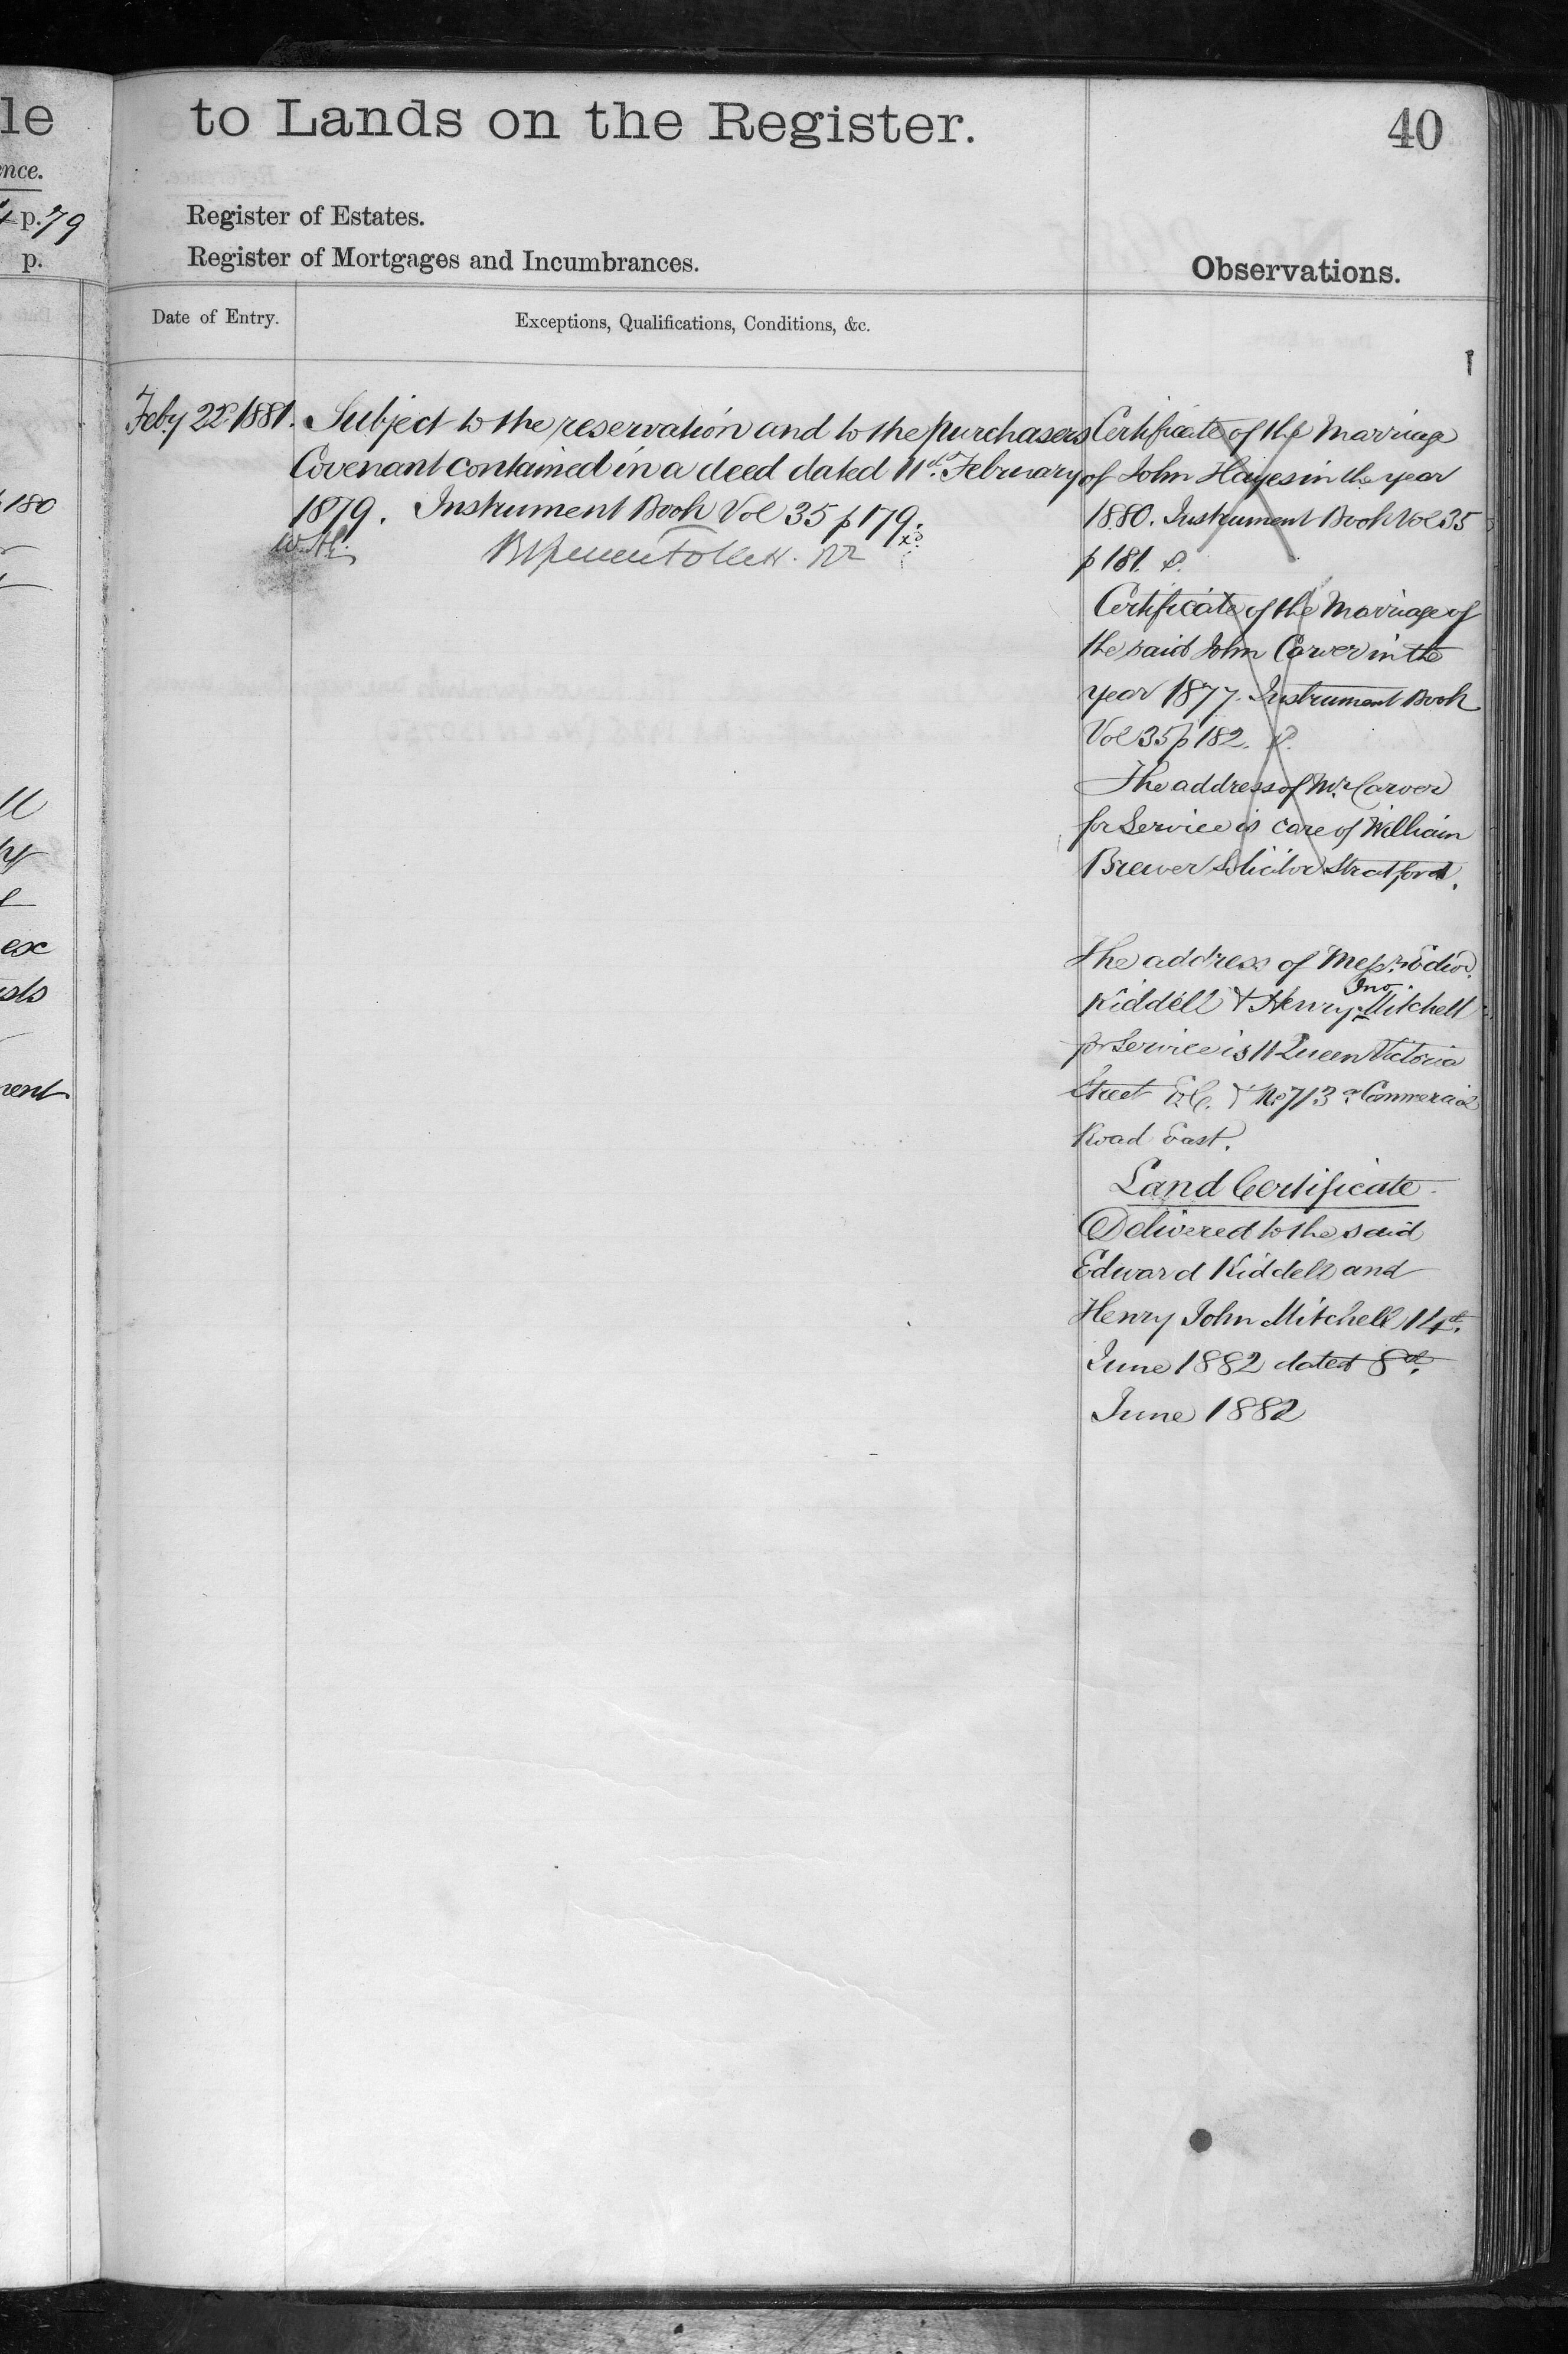 le
to Lands on the Register.
40
nce.
p. 79
p.
Register of Estates.
Register of Mortgages and Incumbrances.
Observations.
Date of Entry.
Exceptions, Qualifications, Conditions, &c.
Feby 22d 1881.
Subject to the reservation and to the purchasers
Covenant contained in a deed dated 11th February
1879. Instrument Book Vol 35 p 179.
Certificate of the Marriage
of John Hayes in the year
1880. Instrument Book Vol 35
p 181.
Certificate of the Marriage of
the said John Carver in the
year 1877. Instrument Book
Vol 35 p 182.
The address of Mr. Carver
for Service is care of William
Brewer Solicitor Stratford.
The address of Messrs. Edwd.
Kiddell & Henry Jno Mitchell
for Service is 11 Queen Victoria
Street E.C. & No 713 a Commercial
Road East.
Land Certificate
Delivered to the said
Edward Kiddell and
Henry John Mitchell 14th.
June 1882 dated 8th.
June 1882
180
ll
ex
sts
ment